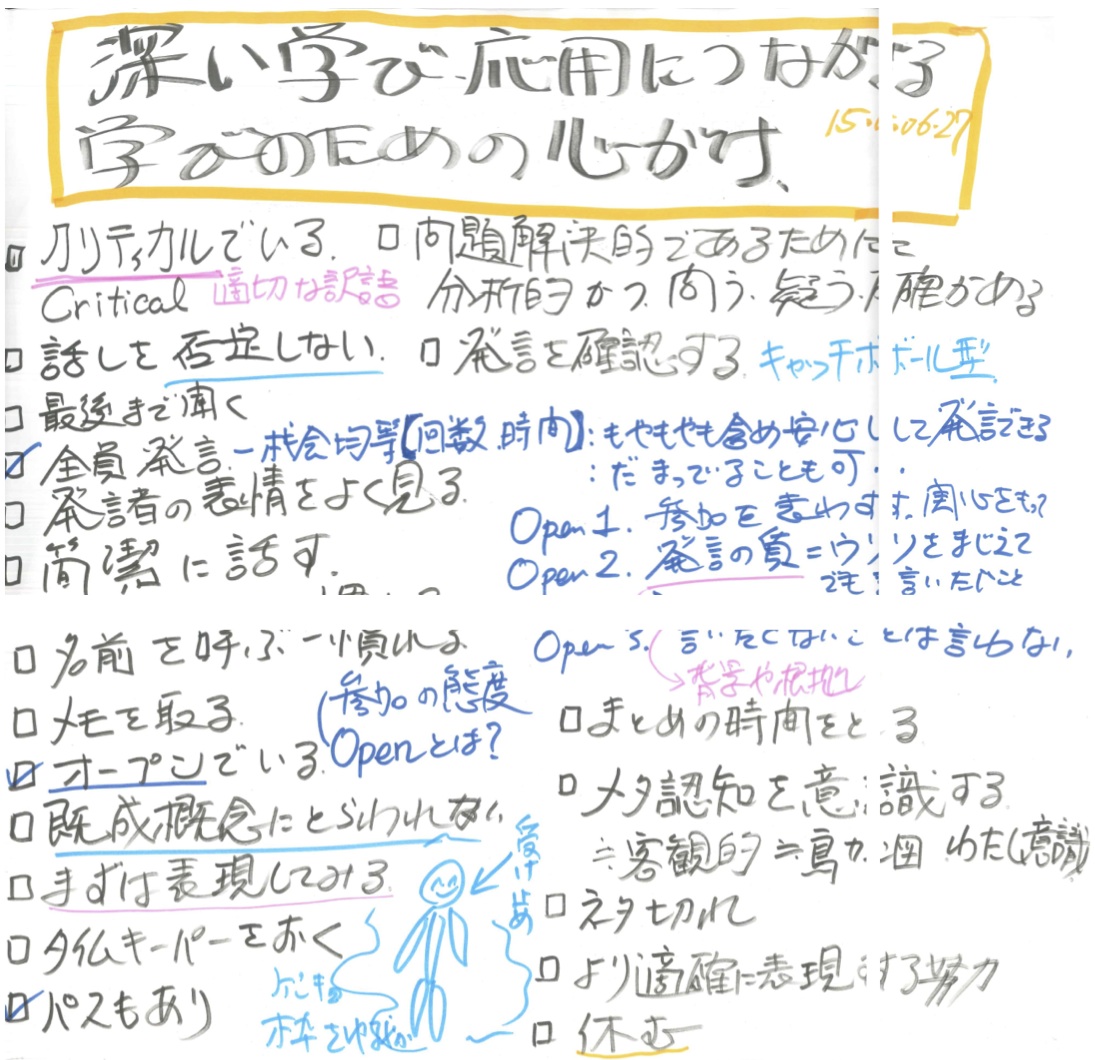 深い学び 応用につながる
学びのための心がけ
15.06.27
□ クリティカルでいる.
Critical 適切な訳語
□ 問題解決的であるために
分析的かつ 問う. 疑う. 確かめる
□ 話しを否定しない.
□ 発言を確認する. キャッチボール型
□ 最後まで聞く
□ 全員発言. 一機会均等【回数.時間】: もやもやも含め安心して発言できる
: だまっていることも可・・
□ 発諸者の表情をよく見る.
□ 簡潔に話す.
Open 1. 参加を表わす. 関心をもって
Open 2. 発言の質=ウソをまじえて
でも 言いたいこと
Open 3. 言いたくないことは言わない.
→背景や根拠
□ 名前を呼ぶ一慣れる
□ メモを取る.
□ オープンでいる.
参加の態度
Openとは?
□ 既成概念にとらわれない
□ まずは表現してみる
受け止め
□ タイムキーパーをおく
□ パスもあり
□ まとめの時間をとる
□ メタ認知を意識する.
≒客観的≒鳥かん図
□ ネタ切れ
□ より適確に表現する努力
□ 休む